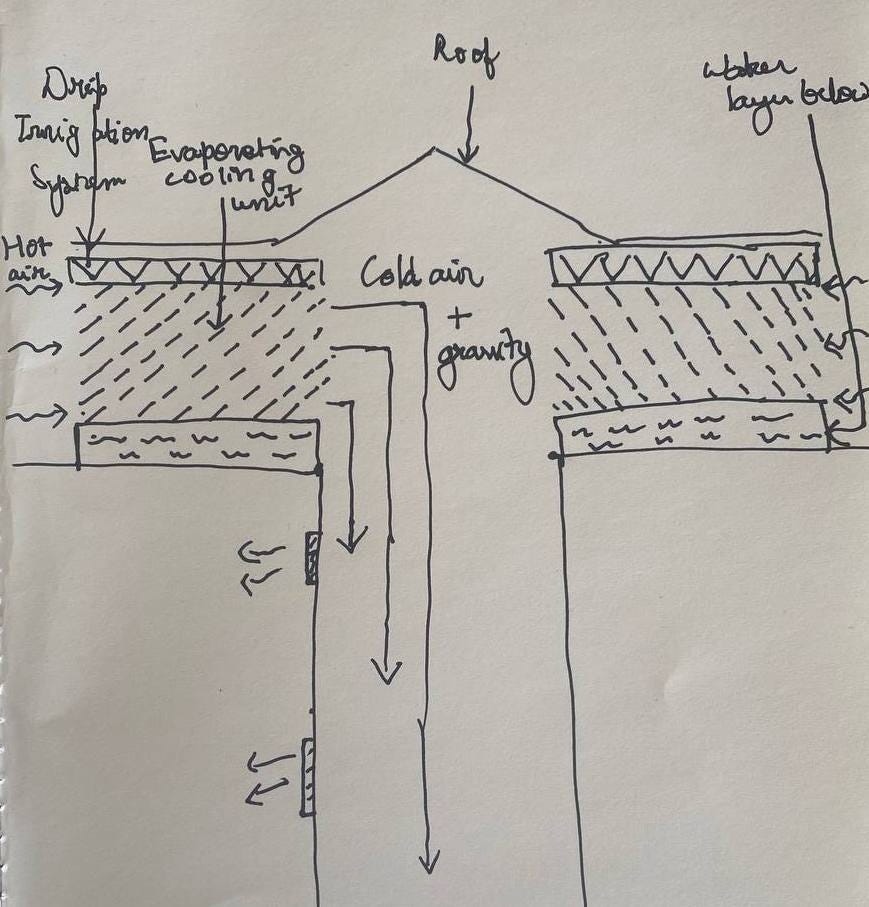 Roof
Drip
Irrigation
System
Evaporating
cooling
unit
Hot
air
Cold air
+
gravity
water
layer below